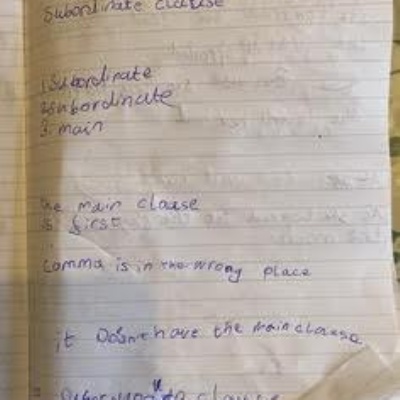 Subordinate clause
1. Subordinate
2. Subordinate
3. main
the main clause
is first
Comma is in the wrong place
it Doesnt have the main clause
clause